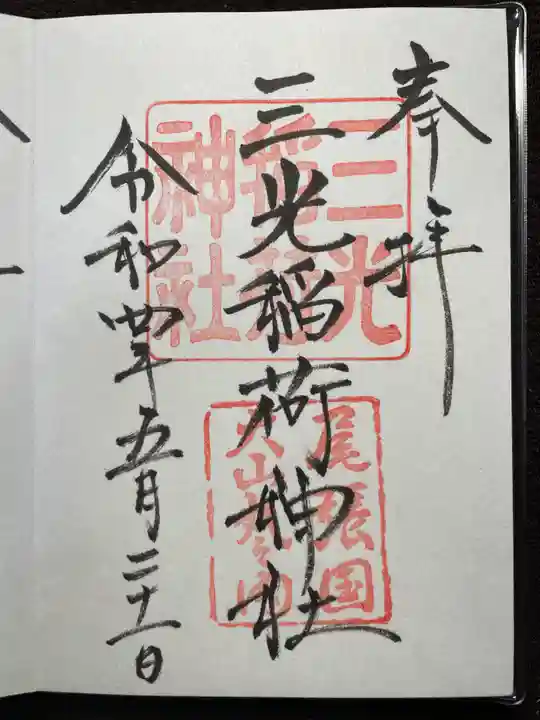 奉拝
三光稲荷神社
令和四年五月二十一日
三光
稲荷
神社
尾張国
犬山